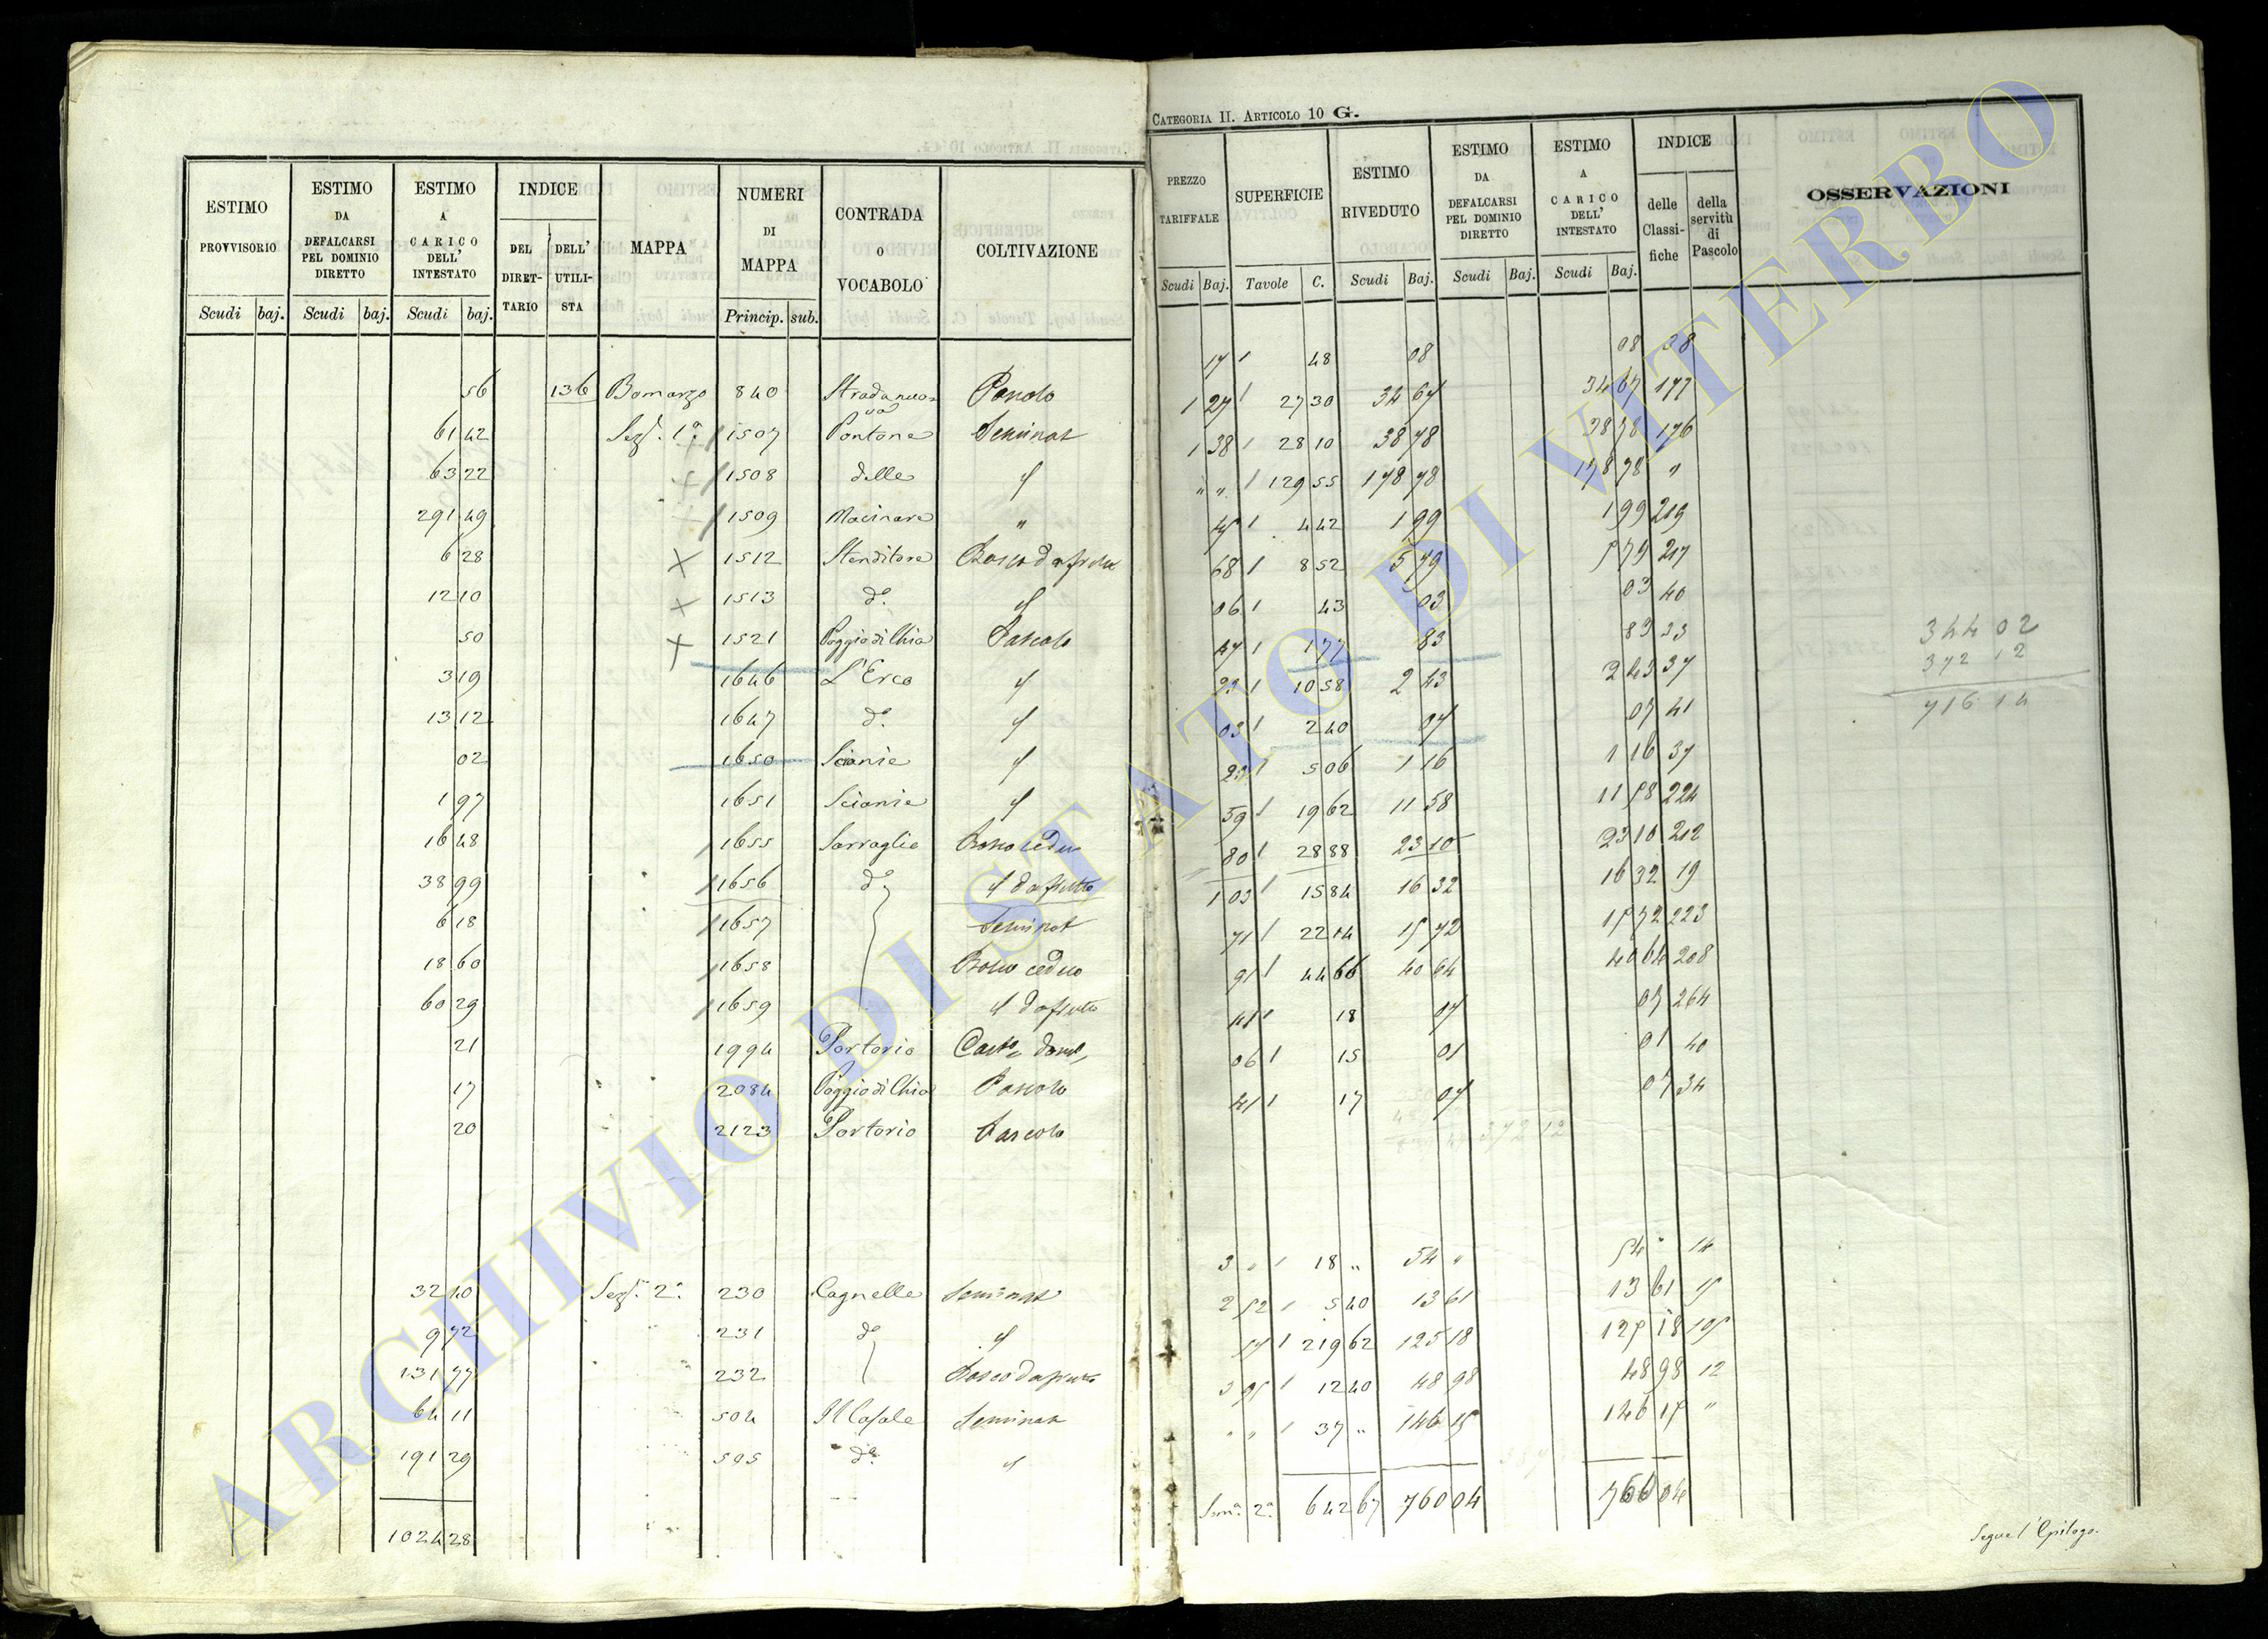 CATEGORIA II. ARTICOLO 10 G.
ESTIMO PROVVISORIO | ESTIMO DA DEFALCARSI PEL DOMINIO DIRETTO | ESTIMO A CARICO DELL' INTESTATO | INDICE DEL DIRETTARIO | DELL' UTILISTA | MAPPA | NUMERI DI MAPPA | CONTRADA O VOCABOLO | COLTIVAZIONE
Scudi baj. Scudi baj. Scudi baj. Princip. sub.
56 136 Bomarzo 840 Strada nuova Pascolo
61 42 Sez. 1a 1507 Pontone Seminat
63 22 1508 delle "
291 49 1509 Macinara "
6 28 1512 Stenditore Bosco da frutto
12 10 1513 do. "
50 1521 Poggio di Chia Pascolo
3 19 1646 L'Erco "
13 12 1647 do. "
02 1650 Scianie "
1 97 1651 Scianie "
16 48 1655 Sarraglie Bosco ceduo
38 99 1656 do " da frutto
6 18 1657 Seminat
18 60 1658 Bosco ceduo
60 29 1659 " da frutto
21 1994 Portorio
17 2084 Poggio di Chia Pascolo
20 2123 Portorio Pascolo
32 40 Sez. 2a 230 Cagnelle Seminat
9 72 231 do "
131 77 232 Bosco da frutto
64 11 504 Il Casale Seminat
191 29 595 do. "
1024 28
PREZZO TARIFFALE | SUPERFICIE | ESTIMO RIVEDUTO | ESTIMO DA DEFALCARSI PEL DOMINIO DIRETTO | ESTIMO A CARICO DELL' INTESTATO | INDICE delle Classifiche | della servitù di Pascolo | OSSERVAZIONI
Scudi Baj. Tavole C. Scudi Baj. Scudi Baj. Scudi Baj.
17 48 08 08 38
1 27 27 30 34 67 34 67 177
1 38 28 10 38 78 38 78 176
" " 129 55 178 78 178 78 "
45 4 42 1 99 1 99 219
68 8 52 5 79 5 79 217
06 43 03 03 40
47 1 77 83 83 33
23 10 58 2 43 2 43 37
03 2 40 07 07 41
23 5 06 1 16 1 16 37
59 19 62 11 58 11 58 224
80 28 88 23 10 23 10 212
1 03 15 84 16 32 16 32 19
71 22 14 15 72 15 72 223
91 44 66 40 64 40 64 208
41 18 07 07 264
06 15 01 01 40
41 17 07 07 34
3 " 18 " 54 " 54 " 14
2 52 5 40 13 61 13 61 15
57 219 62 125 18 125 18 105
3 95 12 40 48 98 48 98 12
" " 37 " 146 15 146 15 "
Som. 2a 642 67 760 04 760 04
344 02
372 12
716 14
372 12
Segue l'Epilogo.
ARCHIVIO DI STATO DI VITERBO